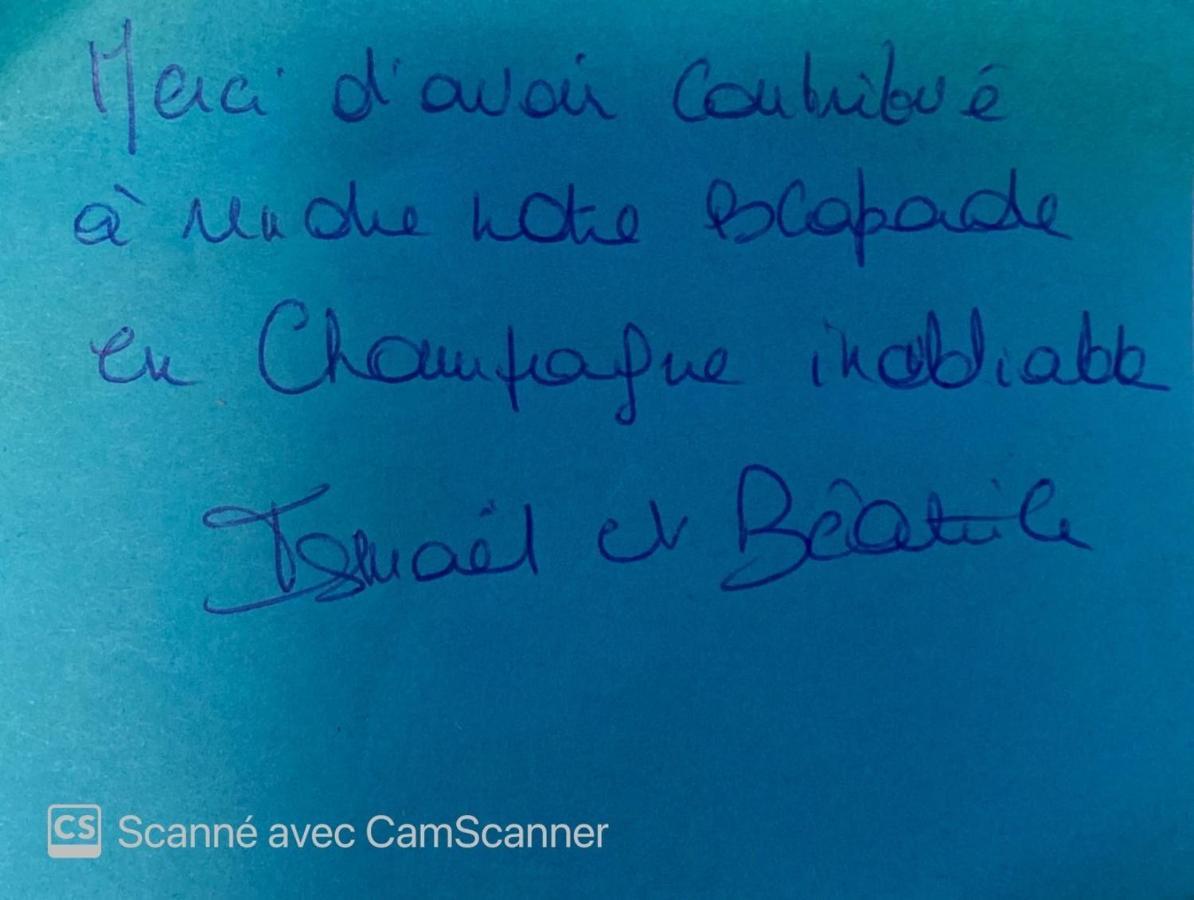 Merci d'avoir contribué
à rendre notre escapade
en Champagne inoubliable
Ismaël et Béatrice
CS Scanné avec CamScanner